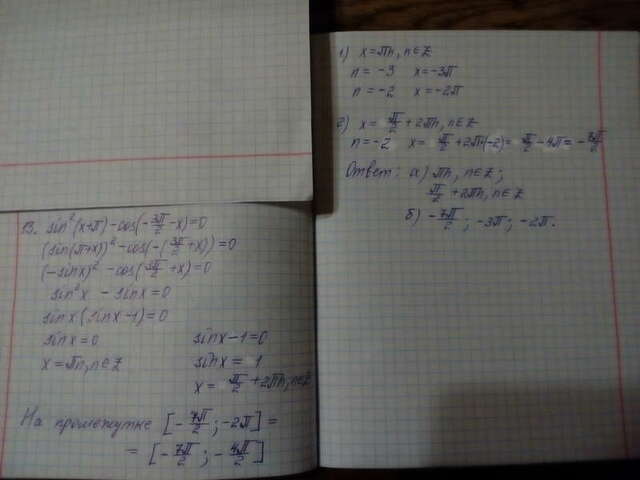 13. sin²(x+π) - cos(-3π/2 - x) = 0
(sin(π+x))² - cos(-(3π/2 + x)) = 0
(-sinx)² - cos(3π/2 + x) = 0
sin²x - sinx = 0
sinx (sinx - 1) = 0
sinx = 0 sinx - 1 = 0
x = πn, n∈Z sinx = 1
x = π/2 + 2πn, n∈Z
На промежутке [-7π/2 ; -2π] =
= [-7π/2 ; -4π/2]
1) x = πn, n∈Z
n = -3 x = -3π
n = -2 x = -2π
2) x = π/2 + 2πn, n∈Z
n = -2 x = π/2 + 2π·(-2) = π/2 - 4π = -7π/2
Ответ: а) πn, n∈Z;
π/2 + 2πn, n∈Z
б) -7π/2 ; -3π ; -2π.